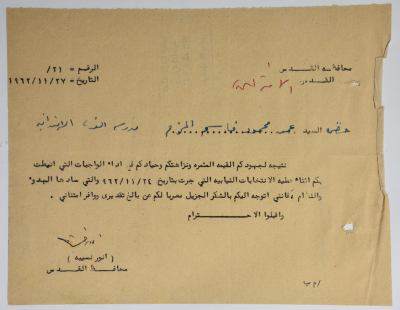 محافظة القدس
القدس
الرقم /٢١
التاريخ ١٩٦٢/١١/٢٧
حضرة السيد عمر محمود قاسم المحترم مدرسة الابتدائية
نتيجة لجهودكم القيمة المثمرة ونزاهتكم وحيادكم في اداء الواجبات التي انيطت
بكم اثناء عملية الانتخابات النيابية التي جرت بتاريخ ٩٦٢/١١/٢٤ والتي سادها الهدوء
والنظام فانني اتوجه اليكم بالشكر الجزيل معربا لكم عن بالغ تقديري ووافر امتناني ٠
واقبلوا الاحترام
( انور نسيبه )
محافظ القدس